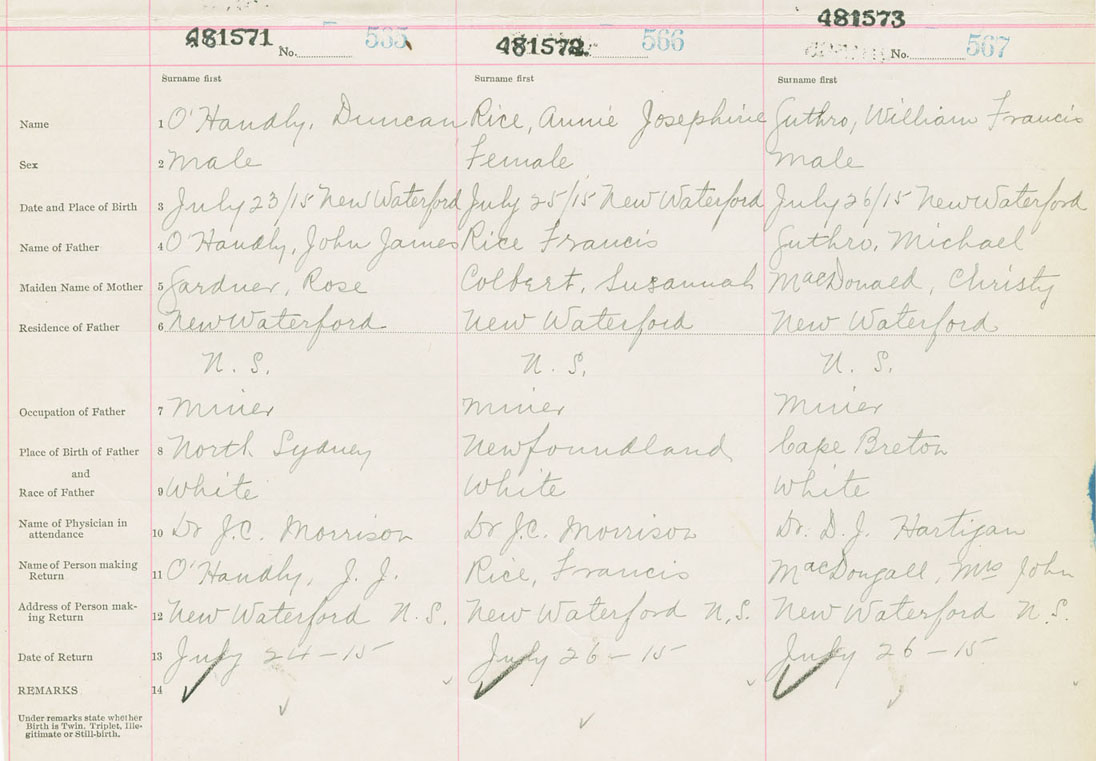 481571 No. 565 481572 566 481573 No. 567
Surname first Surname first Surname first
Name 1 O'Handly, Duncan Rice, Annie Josephine Guthro, William Francis
Sex 2 Male Female Male
Date and Place of Birth 3 July 23/15 New Waterford July 25/15 New Waterford July 26/15 New Waterford
Name of Father 4 O'Handly, John James Rice Francis Guthro, Michael
Maiden Name of Mother 5 Gardner, Rose Colbert, Susannah MacDonald, Christy
Residence of Father 6 New Waterford New Waterford New Waterford
N. S. N. S. N. S.
Occupation of Father 7 Miner Miner Miner
Place of Birth of Father 8 North Sydney Newfoundland Cape Breton
and
Race of Father 9 White White White
Name of Physician in
attendance 10 Dr J.C. Morrison Dr J.C. Morrison Dr. D. J. Hartigan
Name of Person making
Return 11 O'Handly, J. J. Rice, Francis MacDougall, Mrs John
Address of Person mak-
ing Return 12 New Waterford N. S. New Waterford N. S. New Waterford N. S.
Date of Return 13 July 24-15 July 26-15 July 26-15
REMARKS 14
Under remarks state whether
Birth is Twin, Triplet, Ille-
gitimate or Still-birth.